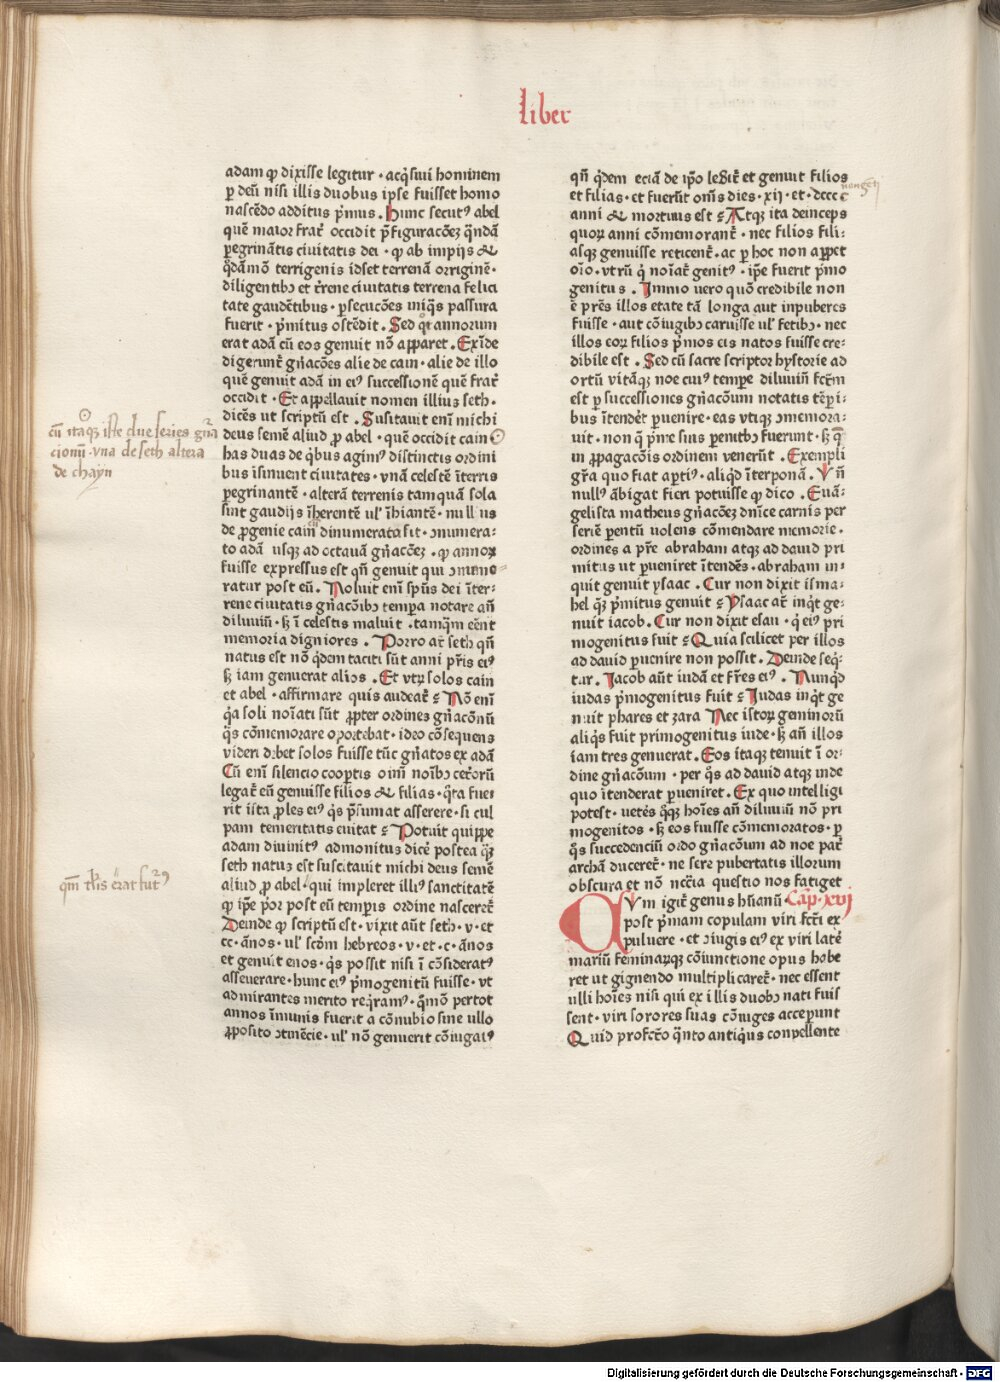 liber
adam ꝙ dixisse legitur · acq̄siui hominem
ꝑ deū nisi illis duobus ipse fuisset homo
nascēdo additus p̄mus . Hunc secutꝰ abel
quē maior frat̄ occidit p̄figuracōeꝫ q̄ndā
ꝑegrinātis ciuitatis dei · ꝙ ab impijs ⁊
q̄dāmō terrigenis idset terrenā orriginē ·
diligentibꝰ et t̄rene ciuitatis terrena felici
tate gaudētibus · ꝑsecucōes iniq̄s passura
fuerit · p̄mitus ostēdit . Sed qͦt annorum
erat adā cū eos genuit nō apparet . Exīde
digerunt̄ gn̄acōes alie de cain · alie de illo
quē genuit adā in eiꝰ successionē quē frat̄
occidit · Et appellauit nomen illius seth ·
dicēs ut scriptū est . Susitauit enī michi
deus semē aliud ꝓ abel · quē occidit cain
has duas de q̄bus agimꝰ distinctis ordini
bus īsinuent ciuitates · vnā celestē īterris
ꝑegrinantē · alterā terrenis tamquā sola
sint gaudijs īherentē ul' īhiantē · nullus
de ꝓgenie cain dinumerata sit · ↄnumera-
to adā usqꝫ ad octauā gn̄acōeꝫ · ꝙ annoꝝ
fuisse expressus est qn̄ genuit qui ↄmemo
ratur post eū . Noluit enī spūs dei īter-
rene ciuitatis gn̄acōibꝰ tempa notare an̄
diluuiū · sꝫ ī celestis maluit · tamqm̄ eēnt
memoria digniores . Porro at̄ seth qn̄
natus est nō q̄dem taciti sūt anni pr̄is eiꝰ
sꝫ iam genuerat alios . Et vtꝝ solos cain
et abel · affirmare quis audeat̄ ⸮ Nō enī
q̄a soli noīati sūt ꝓpter ordines gn̄acōnū
q̄s cōmemorare oportebat · ideo cōsequens
videri debet solos fuisse tūc gn̄atos ex adā
Cū enī silencio coopertis oīm noībꝰ cet̄orū
legat̄ eū genuisse filios ⁊ filias · q̄ta fue
rit ista ꝓles eiꝰ q̄s p̄sumat asserere · si cul
pam temeritatis euitat ⸮ Potuit quippe
adam diuinitꝰ admonitus dicē postea q̄ꝫ
seth natus est suscitauit michi deus semē
aliud ꝓ abel · qui impleret illiꝰ sanctitatē
ꝙ ip̄e p̄or post eū temꝑis ordine nasceret̄
Deinde ꝙ scriptū est · vixit aūt seth · v · et
cc · ānos · ul' scdm̄ hebreos · v · et · c · ānos
et genuit enos · q̄s possit nisi ī cōsideratꝰ
asseuerare · hunc eiꝰ p̄mogenitū fuisse · vt
admirantes merito req̄ramꝰ · q̄mō pertot
annos īmunis fuerit a cōnubio sine ullo
ꝓposito ↄtinēcie · ul' nō genuerit cōiugatꝰ
cū itaqꝫ iste due series gn̄a
cionū · vna de seth altera
de chayn
qm̄ tl̄is erat futꝰ
qn̄ q̄dem eciā de ip̄o legit̄ et genuit filios
et filias · et fuerūt om̄s dies · xij · et · dcccc
anni ⁊ mortuus est ⸮ Atqꝫ ita deinceps
quoꝝ anni cōmemorant̄ · nec filios fili-
asqꝫ genuisse reticent̄ · ac ꝑ hoc non appet
oīo · vtrū q̄ noīat̄ genitꝰ · ip̄e fuerit p̄mo
genitus . Immo uero quō credibile non
ē pr̄es illos etate tā longa aut inpuberes
fuisse · aut cōiugibꝰ caruisse ul' fetibꝰ · nec
illos eoꝝ filios p̄mos eis natos fuisse cre-
dibile est . Sed cū sacre scriptor hystorie ad
ortū vitāqꝫ noe cuiꝰ tempe diluuiū fcm̄
est ꝑ successiones gn̄acōum notatis tēꝑi-
bus ītendet̄ ꝑuenire · eas vtiqꝫ ↄmemora-
uit · non q̄ p̄me suis ꝑentibꝰ fuerunt · sꝫ q̄
in ꝓpagacōis ordinem venerūt . Exempli
gr̄a quo fiat aꝑtiꝰ · aliq̄d īterponā . Vn̄
nullꝰ ābigat fieri potuisse ꝙ dico . Euā-
gelista matheus gn̄acōeꝫ dn̄ice carnis per
seriē ꝑentū uolens cōmendare memorie ·
ordines a pr̄e abraham atqꝫ ad dauid pri
mitus ut ꝑueniret ītendēs · abraham in-
quit genuit ysaac . Cur non dixit isma-
hel q̄ꝫ p̄mitus genuit ⸮ Ysaac at̄ inq̄t ge-
nuit iacob . Cur non dixit esau · q̄ eiꝰ pri
mogenitus fuit ⸮ Quia scilicet per illos
ad dauid ꝑuenire non possit . Deinde seq̄-
tur . Iacob aūt iudā et fr̄es eiꝰ . Nunq̄d
iudas p̄mogenitus fuit ⸮ Iudas inq̄t ge
nuit phares et zara Nec istoꝝ geminorū
aliq̄s fuit primogenitus iude · sꝫ an̄ illos
iam tres genuerat . Eos itaqꝫ tenuit ī or-
dine gn̄acōum · per q̄s ad dauid atqꝫ inde
quo ītenderat ꝑueniret . Ex quo intelligi
potest · uetēs q̄qꝫ hoīes an̄ diluuiū nō pri
mogenitos · sꝫ eos fuisse cōmemoratos · ꝑ
q̄s succedenciū ordo gn̄acōum ad noe pat̄
archā duceret̄ · ne sere pubertatis illorum
obscura et nō nccīa questio nos fatiget
CVm igit̄ genus hūanū · Cap · xvj
post p̄mam copulam viri fcti ex
puluere · et ↄiugis eiꝰ ex viri late
mariū feminaꝝqꝫ cōiunctione opus habe
ret ut gignendo multiplicaret̄ · nec essent
ulli hoīes nisi qui ex illis duobꝰ nati fuis
sent · viri sorores suas cōiuges acceꝑunt
Quid profcto q̄nto antiq̄us conpellente